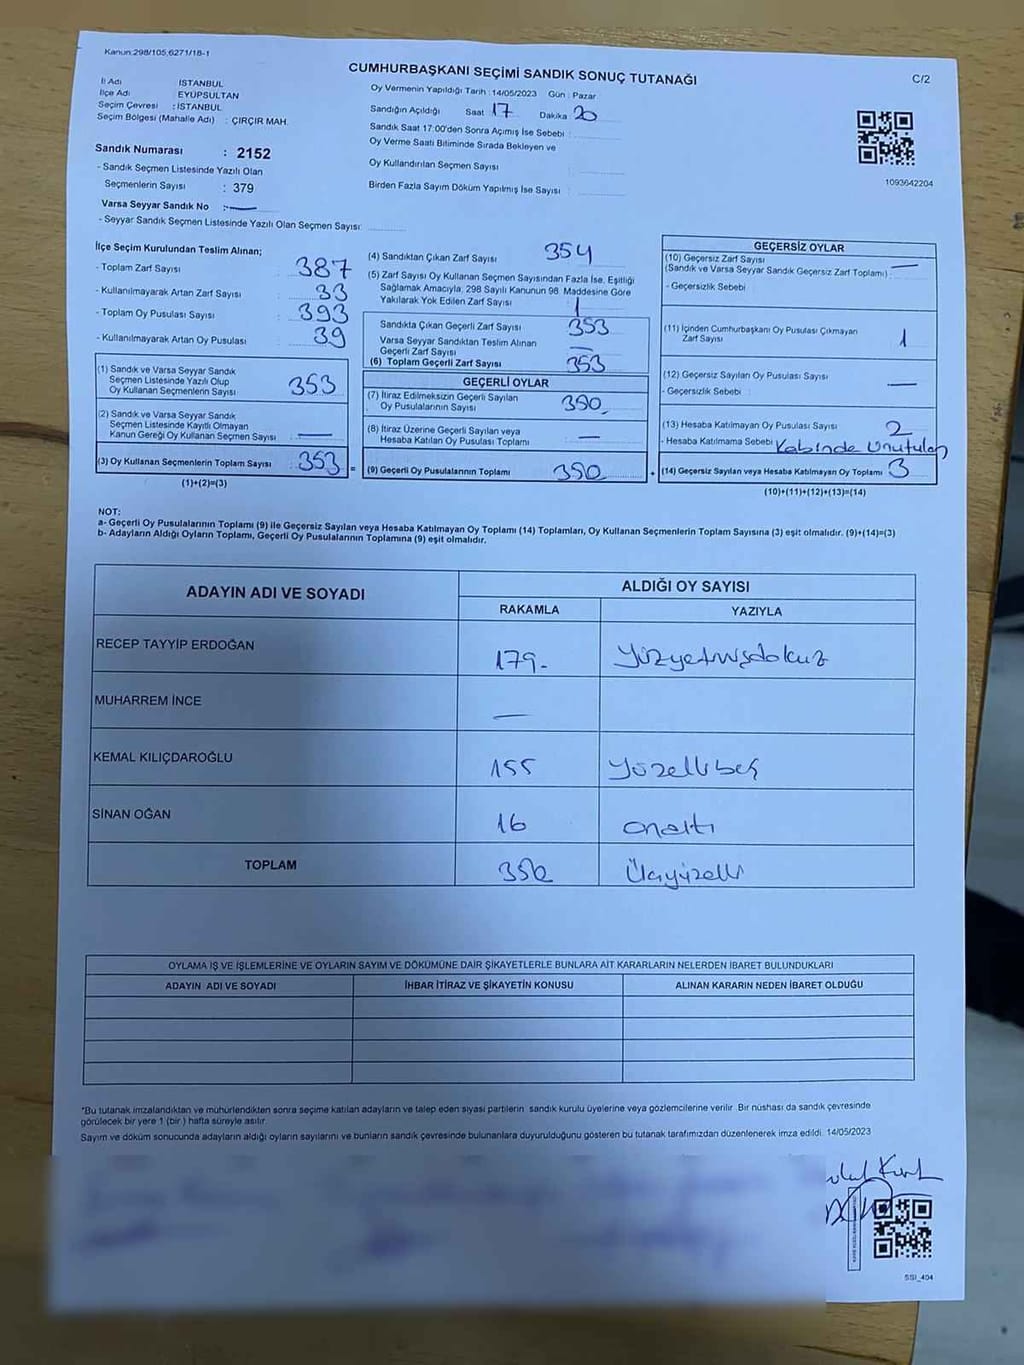 Kanun:298/105,6271/18-1
CUMHURBAŞKANI SEÇİMİ SANDIK SONUÇ TUTANAĞI
C/2
İl Adı İSTANBUL
İlçe Adı EYÜPSULTAN
Seçim Çevresi : İSTANBUL
Seçim Bölgesi (Mahalle Adı) : ÇIRÇIR MAH.
Sandık Numarası : 2152
- Sandık Seçmen Listesinde Yazılı Olan
Seçmenlerin Sayısı : 379
Varsa Seyyar Sandık No :-
- Seyyar Sandık Seçmen Listesinde Yazılı Olan Seçmen Sayısı:
Oy Vermenin Yapıldığı Tarih : 14/05/2023 Gün : Pazar
Sandığın Açıldığı Saat 17 Dakika 20
Sandık Saat 17:00'den Sonra Açımış İse Sebebi :
Oy Verme Saati Bitiminde Sırada Bekleyen ve
Oy Kullandırılan Seçmen Sayısı :
Birden Fazla Sayım Döküm Yapılmış İse Sayısı :
1093642204
İlçe Seçim Kurulundan Teslim Alınan;
- Toplam Zarf Sayısı : 387
- Kullanılmayarak Artan Zarf Sayısı : 33
- Toplam Oy Pusulası Sayısı : 393
- Kullanılmayarak Artan Oy Pusulası : 39
(1) Sandık ve Varsa Seyyar Sandık
Seçmen Listesinde Yazılı Olup
Oy Kullanan Seçmenlerin Sayısı : 353
(2) Sandık ve Varsa Seyyar Sandık
Seçmen Listesinde Kayıtlı Olmayan
Kanun Gereği Oy Kullanan Seçmen Sayısı : —
(3) Oy Kullanan Seçmenlerin Toplam Sayısı : 353 =
(1)+(2)=(3)
(4) Sandıktan Çıkan Zarf Sayısı : 354
(5) Zarf Sayısı Oy Kullanan Seçmen Sayısından Fazla İse, Eşitliği
Sağlamak Amacıyla, 298 Sayılı Kanunun 98. Maddesine Göre
Yakılarak Yok Edilen Zarf Sayısı : 1
Sandıkta Çıkan Geçerli Zarf Sayısı : 353
Varsa Seyyar Sandıktan Teslim Alınan
Geçerli Zarf Sayısı : —
(6) Toplam Geçerli Zarf Sayısı : 353
GEÇERLİ OYLAR
(7) İtiraz Edilmeksizin Geçerli Sayılan
Oy Pusulalarının Sayısı : 350
(8) İtiraz Üzerine Geçerli Sayılan veya
Hesaba Katılan Oy Pusulası Toplamı : —
(9) Geçerli Oy Pusulalarının Toplamı : 350 +
GEÇERSİZ OYLAR
(10) Geçersiz Zarf Sayısı
(Sandık ve Varsa Seyyar Sandık Geçersiz Zarf Toplamı) : —
- Geçersizlik Sebebi
(11) İçinden Cumhurbaşkanı Oy Pusulası Çıkmayan
Zarf Sayısı : 1
(12) Geçersiz Sayılan Oy Pusulası Sayısı : —
- Geçersizlik Sebebi :
(13) Hesaba Katılmayan Oy Pusulası Sayısı : 2
- Hesaba Katılmama Sebebi : Kabinde Unutulan
(14) Geçersiz Sayılan veya Hesaba Katılmayan Oy Toplamı : 3
(10)+(11)+(12)+(13)=(14)
NOT:
a- Geçerli Oy Pusulalarının Toplamı (9) ile Geçersiz Sayılan veya Hesaba Katılmayan Oy Toplamı (14) Toplamları, Oy Kullanan Seçmenlerin Toplam Sayısına (3) eşit olmalıdır. (9)+(14)=(3)
b- Adayların Aldığı Oyların Toplamı, Geçerli Oy Pusulalarının Toplamına (9) eşit olmalıdır.
ADAYIN ADI VE SOYADI ALDIĞI OY SAYISI
RAKAMLA YAZIYLA
RECEP TAYYİP ERDOĞAN 179- Yüzyetmişdokuz
MUHARREM İNCE —
KEMAL KILIÇDAROĞLU 155 Yüzellibeş
SİNAN OĞAN 16 onaltı
TOPLAM 350 Üçyüzelli
OYLAMA İŞ VE İŞLEMLERİNE VE OYLARIN SAYIM VE DÖKÜMÜNE DAİR ŞİKAYETLERLE BUNLARA AİT KARARLARIN NELERDEN İBARET BULUNDUKLARI
ADAYIN ADI VE SOYADI İHBAR İTİRAZ VE ŞİKAYETİN KONUSU ALINAN KARARIN NEDEN İBARET OLDUĞU
*Bu tutanak imzalandıktan ve mühürlendikten sonra seçime katılan adayların ve talep eden siyasi partilerin sandık kurulu üyelerine veya gözlemcilerine verilir. Bir nüshası da sandık çevresinde
görülecek bir yere 1 (bir) hafta süreyle asılır.
Sayım ve döküm sonucunda adayların aldığı oyların sayılarını ve bunların sandık çevresinde bulunanlara duyurulduğunu gösteren bu tutanak tarafımızdan düzenlenerek imza edildi. 14/05/2023
SSI_404